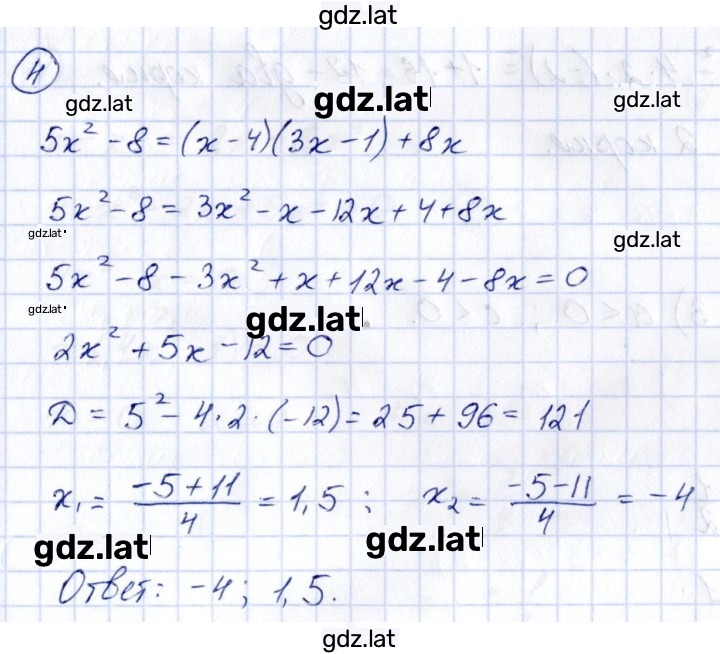 gdz.lat
4
gdz.lat gdz.lat gdz.lat
5x² - 8 = (x - 4)(3x - 1) + 8x
5x² - 8 = 3x² - x - 12x + 4 + 8x
gdz.lat gdz.lat
5x² - 8 - 3x² + x + 12x - 4 - 8x = 0
gdz.lat gdz.lat
2x² + 5x - 12 = 0
Д = 5² - 4·2·(-12) = 25 + 96 = 121
x₁ = (-5+11)/4 = 1,5 ; x₂ = (-5-11)/4 = -4
gdz.lat gdz.lat
Ответ: -4; 1,5.
gdz.lat